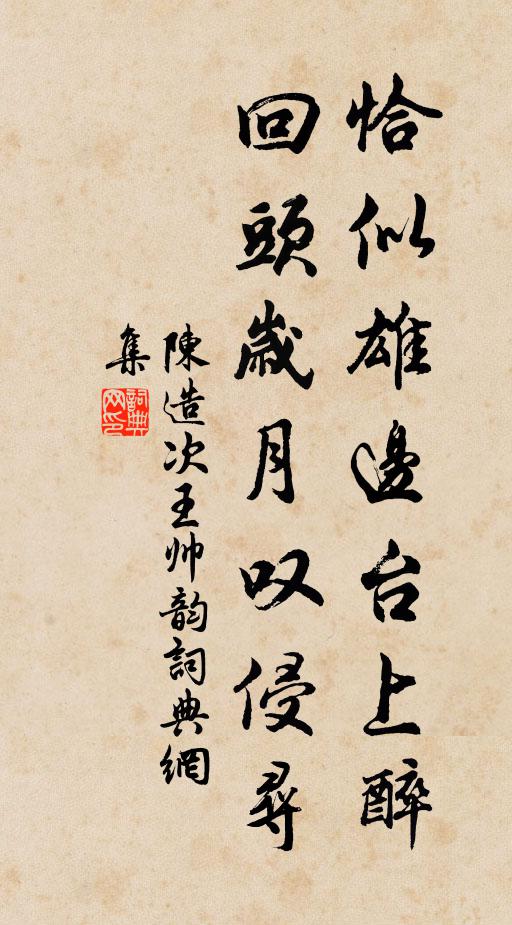 恰似雄邊台上醉
回頭歲月叹侵尋
陳造次王帅韵詞典網
集
詞典网印